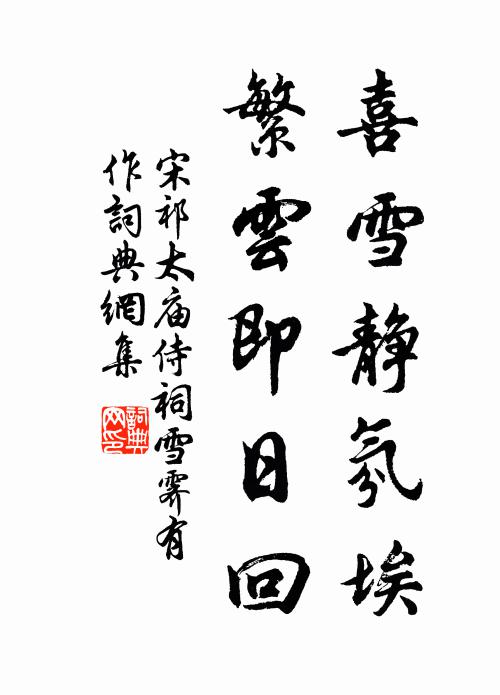 喜雪静氛埃
繁雲即日回
宋祁太庙侍祠雪霽有
作詞典網集
詞典网印